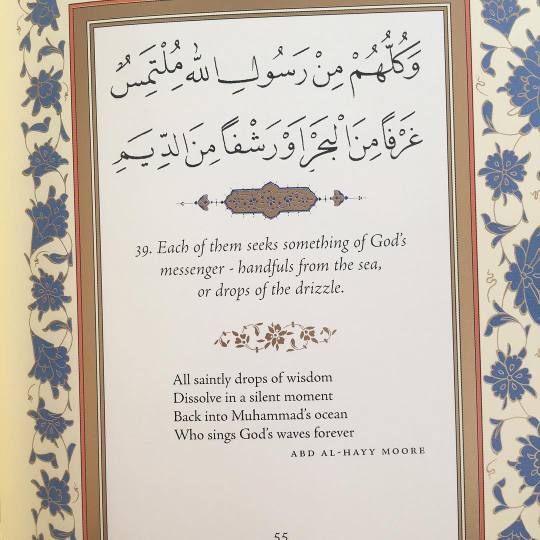 وَكُلُّهُمْ مِنْ رَسُولِ اللهِ مُلْتَمِسٌ
غَرْفًا مِنَ الْبَحْرِ أَوْ رَشْفًا مِنَ الدِّيَمِ
39. Each of them seeks something of God's
messenger - handfuls from the sea,
or drops of the drizzle.
All saintly drops of wisdom
Dissolve in a silent moment
Back into Muhammad's ocean
Who sings God's waves forever
ABD AL-HAYY MOORE
55